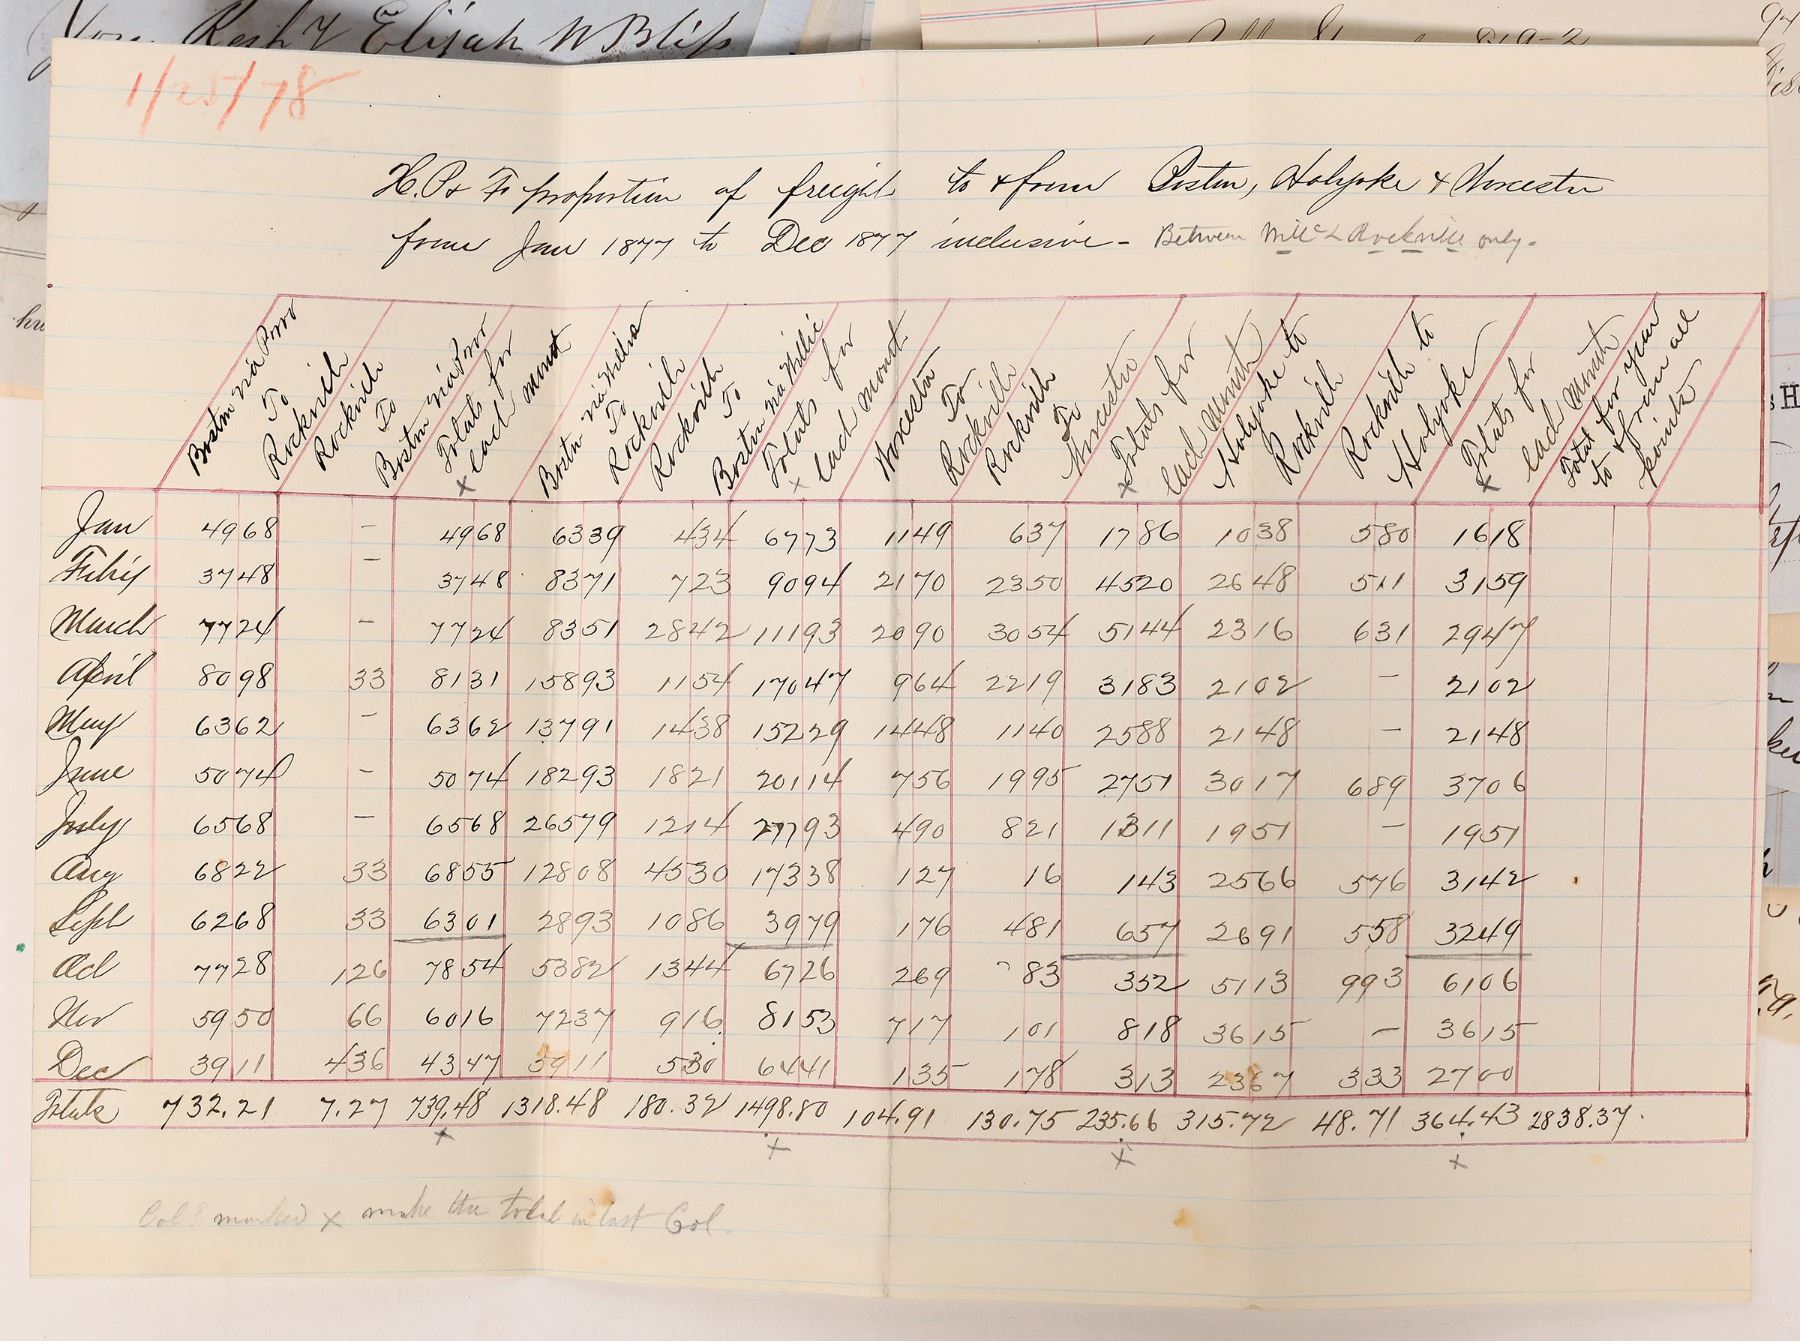 You. Resp'y Elijah W Bliss
1/25/78
H. P. & F. proportion of freight to & from Boston, Holyoke & Worcester
from Jan 1877 to Dec 1877 inclusive - Between Will'c & Rockville only.
Boston via Prov To Rockville
Rockville To Boston via Prov
Totals for each month
Boston via Willia To Rockville
Rockville To Boston via Willi
Totals for Each Month
Worcester To Rockville
Rockville To Worcester
Totals for Each Month
Holyoke to Rockville
Rockville to Holyoke
Totals for Each Month
Total for year to & from all points
x x x x
Jan 4968 - 4968 6339 434 6773 1149 637 1786 1038 580 1618
Feb'y 3748 - 3748 8371 723 9094 2170 2350 4520 2648 511 3159
March 7724 - 7724 8351 2842 11193 2090 3054 5144 2316 631 2947
April 8098 33 8131 15893 1154 17047 964 2219 3183 2102 - 2102
May 6362 - 6362 13791 1438 15229 1448 1140 2588 2148 - 2148
June 5074 - 5074 18293 1821 20114 756 1995 2751 3017 689 3706
July 6568 - 6568 26579 1214 27793 490 821 1311 1951 - 1951
Aug 6822 33 6855 12808 4530 17338 127 16 143 2566 576 3142
Sept 6268 33 6301 2893 1086 3979 176 481 657 2691 558 3249
Oct 7728 126 7854 5382 1344 6726 269 83 352 5113 993 6106
Nov 5950 66 6016 7237 916 8153 717 101 818 3615 - 3615
Dec 3911 436 4347 5911 530 6441 135 178 313 2367 333 2700
Totals 732.21 7.27 739.48 1318.48 180.32 1498.80 104.91 130.75 235.66 315.72 48.71 364.43 2838.37.
x x x x
Cols marked x make the total in last Col.